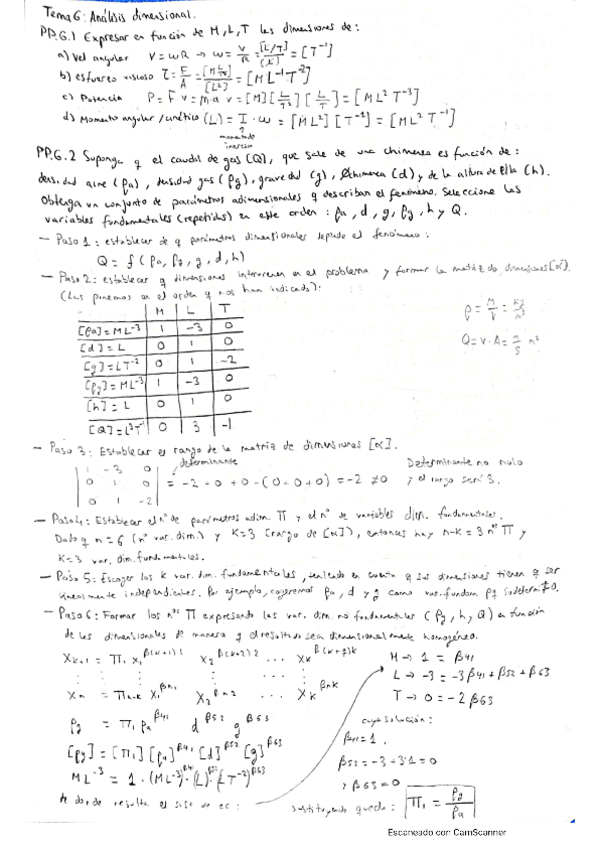 Tema 6: Análisis dimensional.
PP.6.1 Expresar en función de M, L, T las dimensiones de:
a) Vel angular V = ωR → ω = V/R = [L/T]/[L] = [T⁻¹]
b) esfuerzo viscoso τ = F/A = [M L/T²]/[L²] = [M L⁻¹ T⁻²]
c) Potencia P = F v = m a v = [M][L/T²][L/T] = [M L² T⁻³]
d) Momento angular /cinético (L) = I · ω = [M L²][T⁻¹] = [M L² T⁻¹]
momento de
inercia
PP.6.2 Suponga q el caudal de gas (Q), que sale de una chimenea es función de:
densidad aire (ρa), densidad gas (ρg), gravedad (g), Øchimenea (d) y de la altura de ella (h).
Obtenga un conjunto de parámetros adimensionales q describan el fenómeno. Seleccione las
variables fundamentales (repetidas) en este orden: ρa, d, g, ρg, h y Q.
- Paso 1: establecer de q parámetros dimensionales depende el fenómeno:
Q = f (ρa, ρg, g, d, h)
- Paso 2: establecer q dimensiones intervienen en el problema y formar la matriz de dimensiones [α].
(Las ponemos en el orden q nos han indicado):
M L T
[ρa] = ML⁻³ 1 -3 0
[d] = L 0 1 0
[g] = LT⁻² 0 1 -2
[ρg] = ML⁻³ 1 -3 0
[h] = L 0 1 0
[Q] = L³T⁻¹ 0 3 -1
ρ = M/V = kg/m³
Q = V · A = m/s m²
- Paso 3: Establecer el rango de la matriz de dimensiones [α].
determinante
| 1 -3 0 |
| 0 1 0 | = -2 - 0 + 0 - (0 - 0 + 0) = -2 ≠ 0
| 0 1 -2 |
Determinante no nulo
y el rango será 3.
- Paso 4: Establecer el nº de parámetros adim. Π y el nº de variables dim. fundamentales.
Dado q n = 6 (nº var. dim.) y K = 3 (rango de [α]), entonces hay n-k = 3 nºs Π y
K = 3 var. dim. fundamentales.
- Paso 5: Escoger las k var. dim. fundamentales, teniendo en cuenta q sus dimensiones tienen q ser
linealmente independientes. Por ejemplo, cogeremos ρa, d y g como var. fundam. pq su determ ≠ 0.
- Paso 6: Formar los nºs Π expresando las var. dim. no fundamentales (ρg, h, Q) en función
de las dimensionales de manera q el resultado sea dimensionalmente homogéneo.
Xk+1 = Π1 X1^β(k+1)1 X2^β(k+1)2 ... Xk^β(k+1)k
Xn = Πn-k X1^βn1 X2^βn2 ... Xk^βnk
ρg = Π1 ρa^β41 d^β52 g^β63
[ρg] = [Π1] [ρa]^β41 [d]^β52 [g]^β63
ML⁻³ = 1 · (ML⁻³)^β41 · (L)^β52 · (LT⁻²)^β63
de donde resulta el sist de ec:
M → 1 = β41
L → -3 = -3β41 + β52 + β63
T → 0 = -2β63
cuya solución:
β41 = 1.
β52 = -3 + 3·1 = 0
y β63 = 0
sustituyendo queda: Π1 = ρg/ρa
Escaneado con CamScanner